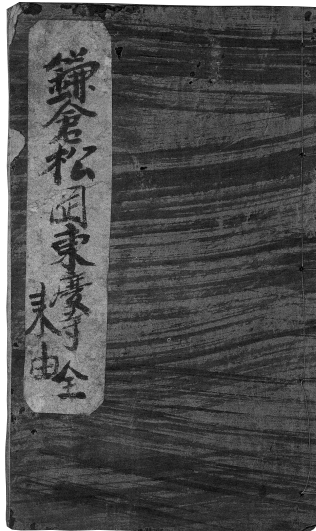 鎌倉松岡東慶寺
来由
全